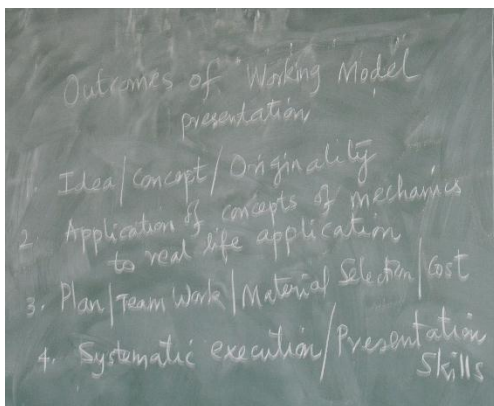 Outcomes of "Working Model"
presentation
1. Idea/Concept/Originality
2. Application of concepts of mechanics
to real life application
3. Plan/Team Work/Material Selection/Cost
4. Systematic execution/Presentation
Skills